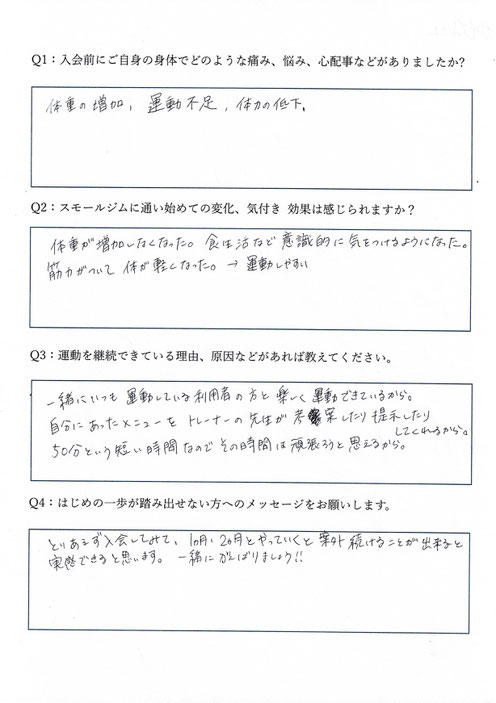 Q1：入会前にご自身の身体でどのような痛み、悩み、心配事などがありましたか?
体重の増加, 運動不足, 体力の低下.
Q2：スモールジムに通い始めての変化、気付き 効果は感じられますか？
体重が増加しなくなった。食生活など意識的に気をつけるようになった。
筋力がついて体が軽くなった。→ 運動しやすい
Q3：運動を継続できている理由、原因などがあれば教えてください。
一緒にいつも運動している利用者の方と楽しく運動できているから。
自分にあったメニューをトレーナーの先生が考案したり提示したり
してくれるから。
50分という短い時間なのでその時間は頑張ろうと思えるから。
Q4：はじめの一歩が踏み出せない方へのメッセージをお願いします。
とりあえず入会してみて、1ヶ月、2ヶ月とやっていくと案外続けることが出来ると
実感できると思います。一緒にがんばりましょう!!